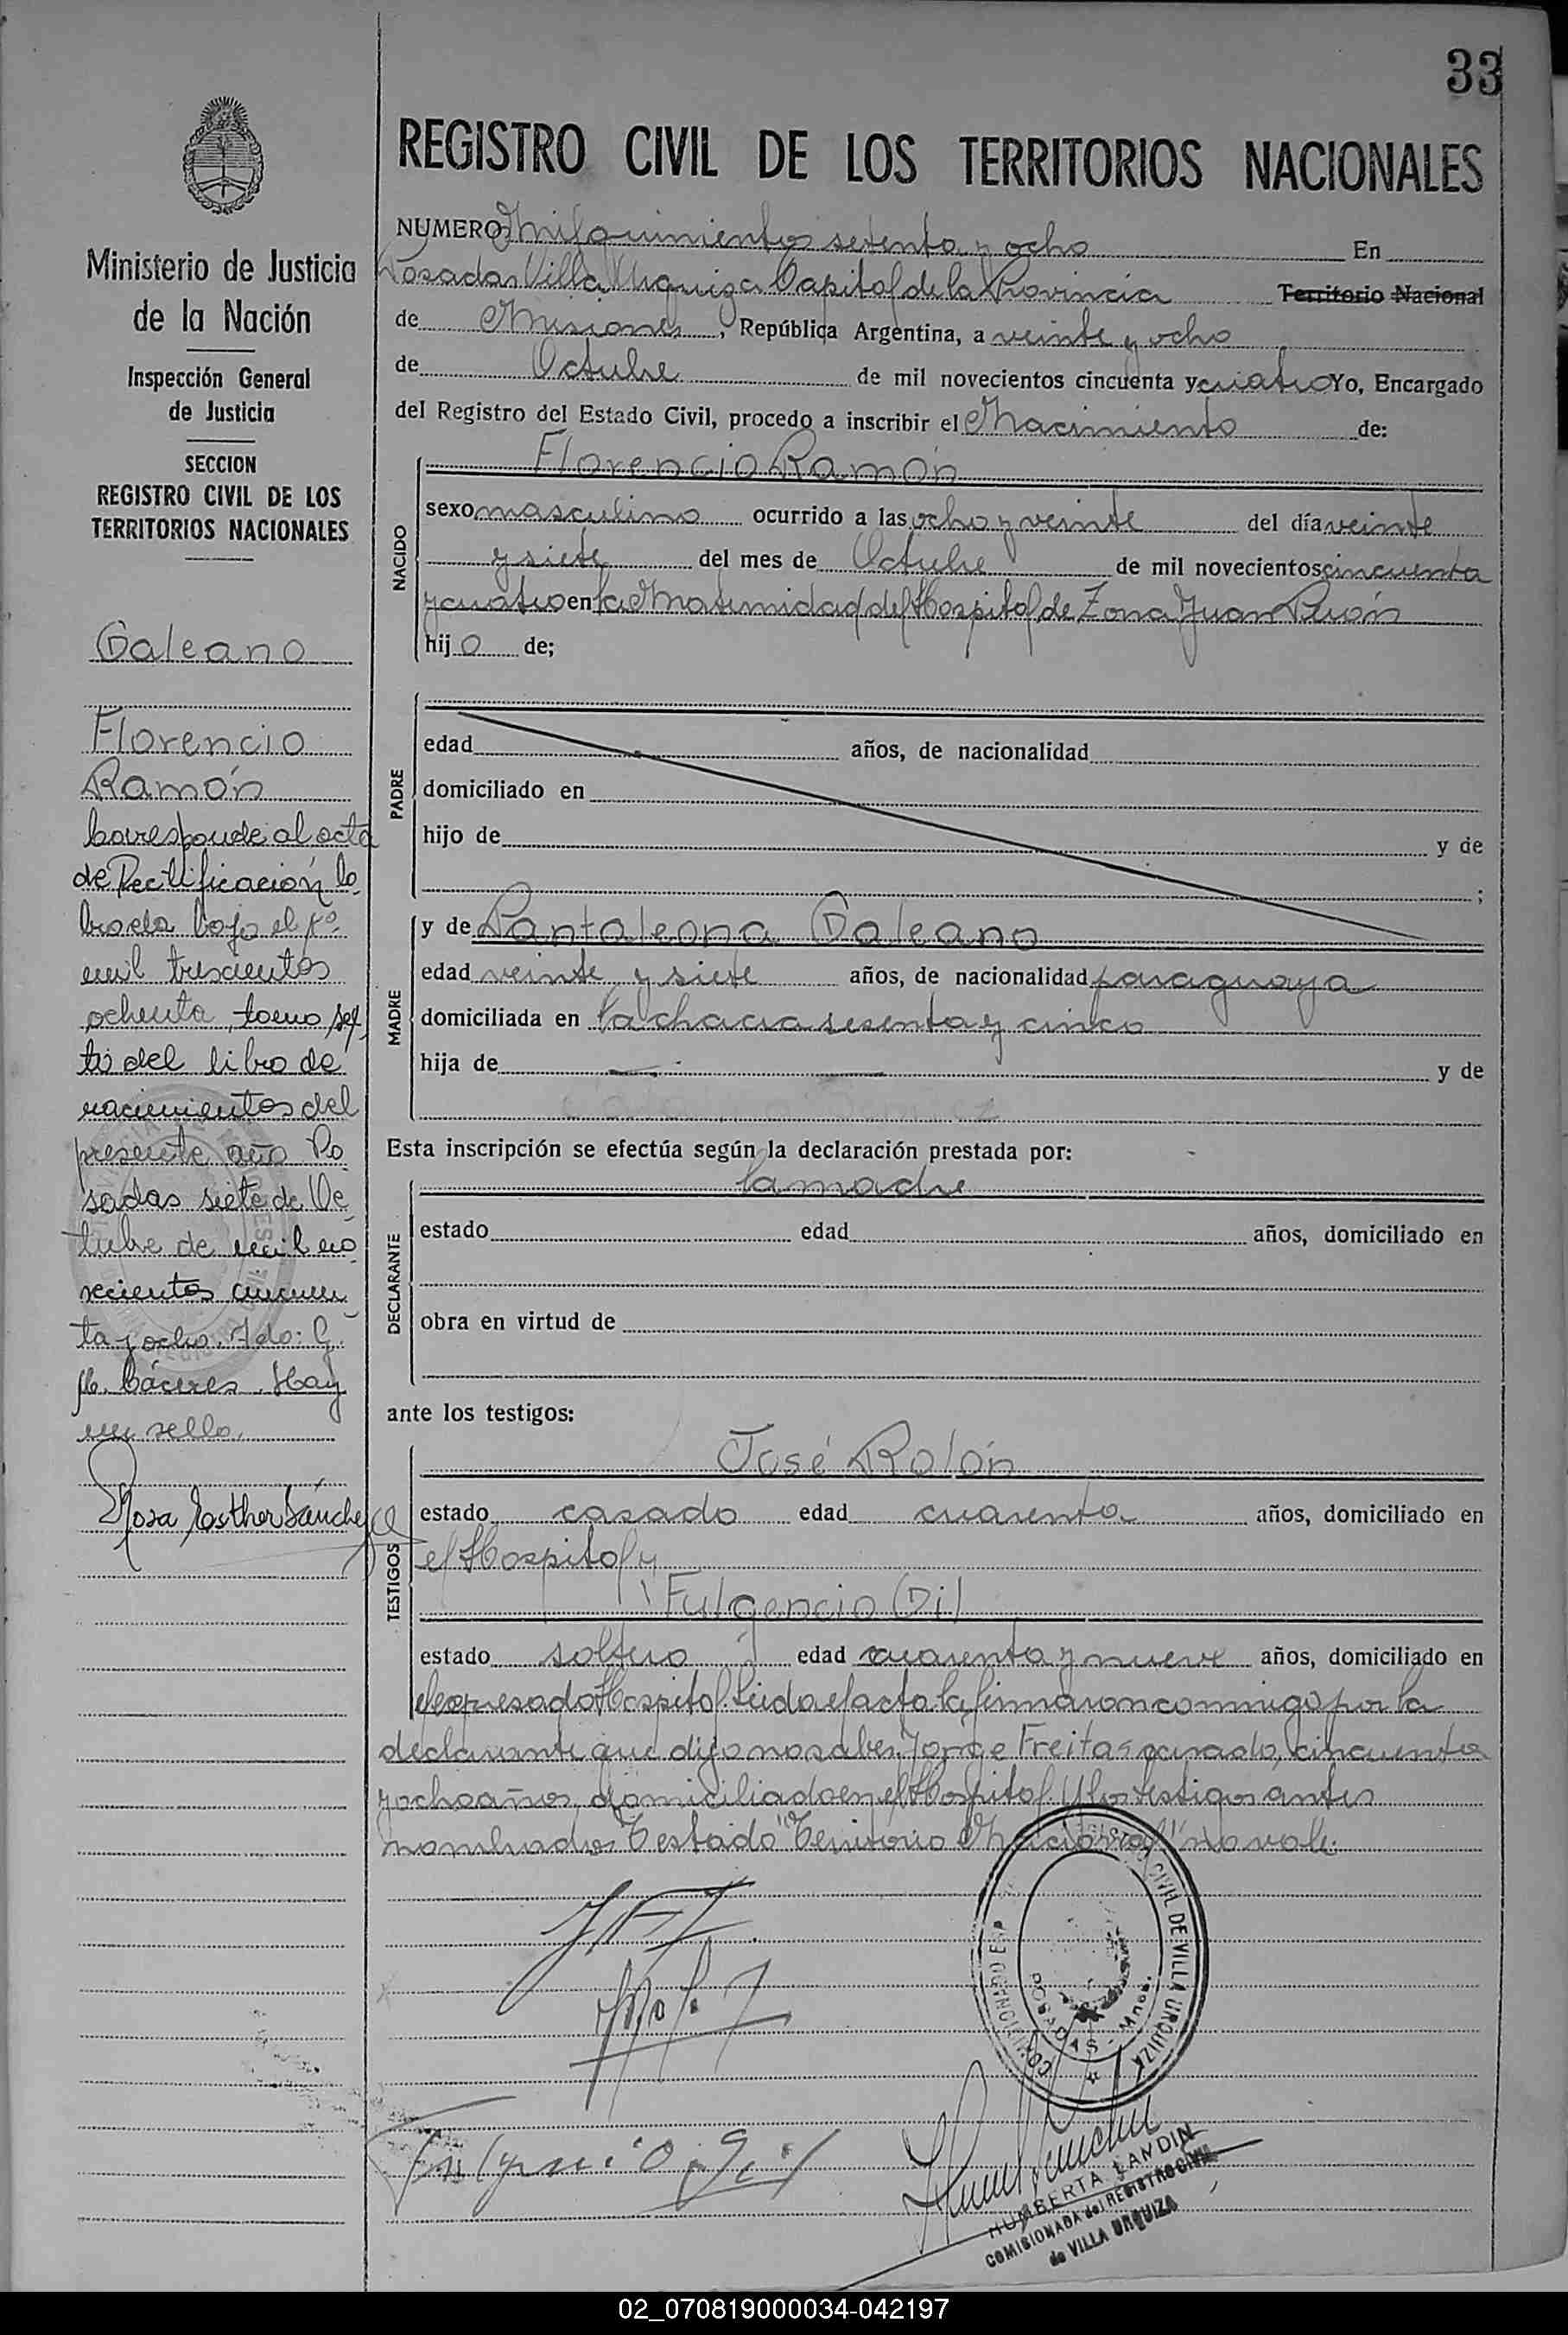 33
REGISTRO CIVIL DE LOS TERRITORIOS NACIONALES
Ministerio de Justicia
de la Nación
Inspección General
de Justicia
SECCION
REGISTRO CIVIL DE LOS
TERRITORIOS NACIONALES
Galeano
Florencio
Ramón
Corresponde al acta
de Rectificación la
brada bajo el Nº
mil trescientos
ochenta, tomo sép
tº del libro de
nacimientos del
presente año Po
sadas siete de Oc
tubre de mil no
vecientos cincuen
ta y ocho. Fdo: G.
Cáceres. Hay
un sello.
Rosa Esther Sánchez
NUMERO Mil quinientos setenta y ocho En
Posadas Villa Urquiza Capital de la Provincia Territorio Nacional
de Misiones, República Argentina, a veinte y ocho
de Octubre de mil novecientos cincuenta y cuatro Yo, Encargado
del Registro del Estado Civil, procedo a inscribir el Nacimiento de:
NACIDO
Florencio Ramón
sexo masculino ocurrido a las ocho y veinte del día veinte
y siete del mes de Octubre de mil novecientos cincuenta
y cuatro en la Maternidad del Hospital de Zona Juan Perón
hijo de;
PADRE
edad años, de nacionalidad
domiciliado en
hijo de y de
;
MADRE
y de Pantaleona Galeano
edad veinte y siete años, de nacionalidad paraguaya
domiciliada en la chacra sesenta y cinco
hija de — — y de
Esta inscripción se efectúa según la declaración prestada por:
DECLARANTE
la madre
estado edad años, domiciliado en
obra en virtud de
ante los testigos:
TESTIGOS
José Rolón
estado casado edad cuarenta años, domiciliado en
el Hospital y
Fulgencio Gil
estado soltero edad cuarenta y nueve años, domiciliado en
el expresado Hospital. Leida el acta la firmaron conmigo por la
declarante que dijo no saber, Jorge Freitas casado, cincuenta
y ocho años, domiciliado en el Hospital. Y los testigos antes
nombrados. Testado "Territorio Nacional" no vale.
REGISTRO CIVIL DE VILLA URQUIZA
POSADAS - Mnes.
Fulgencio Gil
HUMBERTA LANDIN
COMISIONADA del REGISTRO CIVIL
de VILLA URQUIZA
02_070819000034-042197